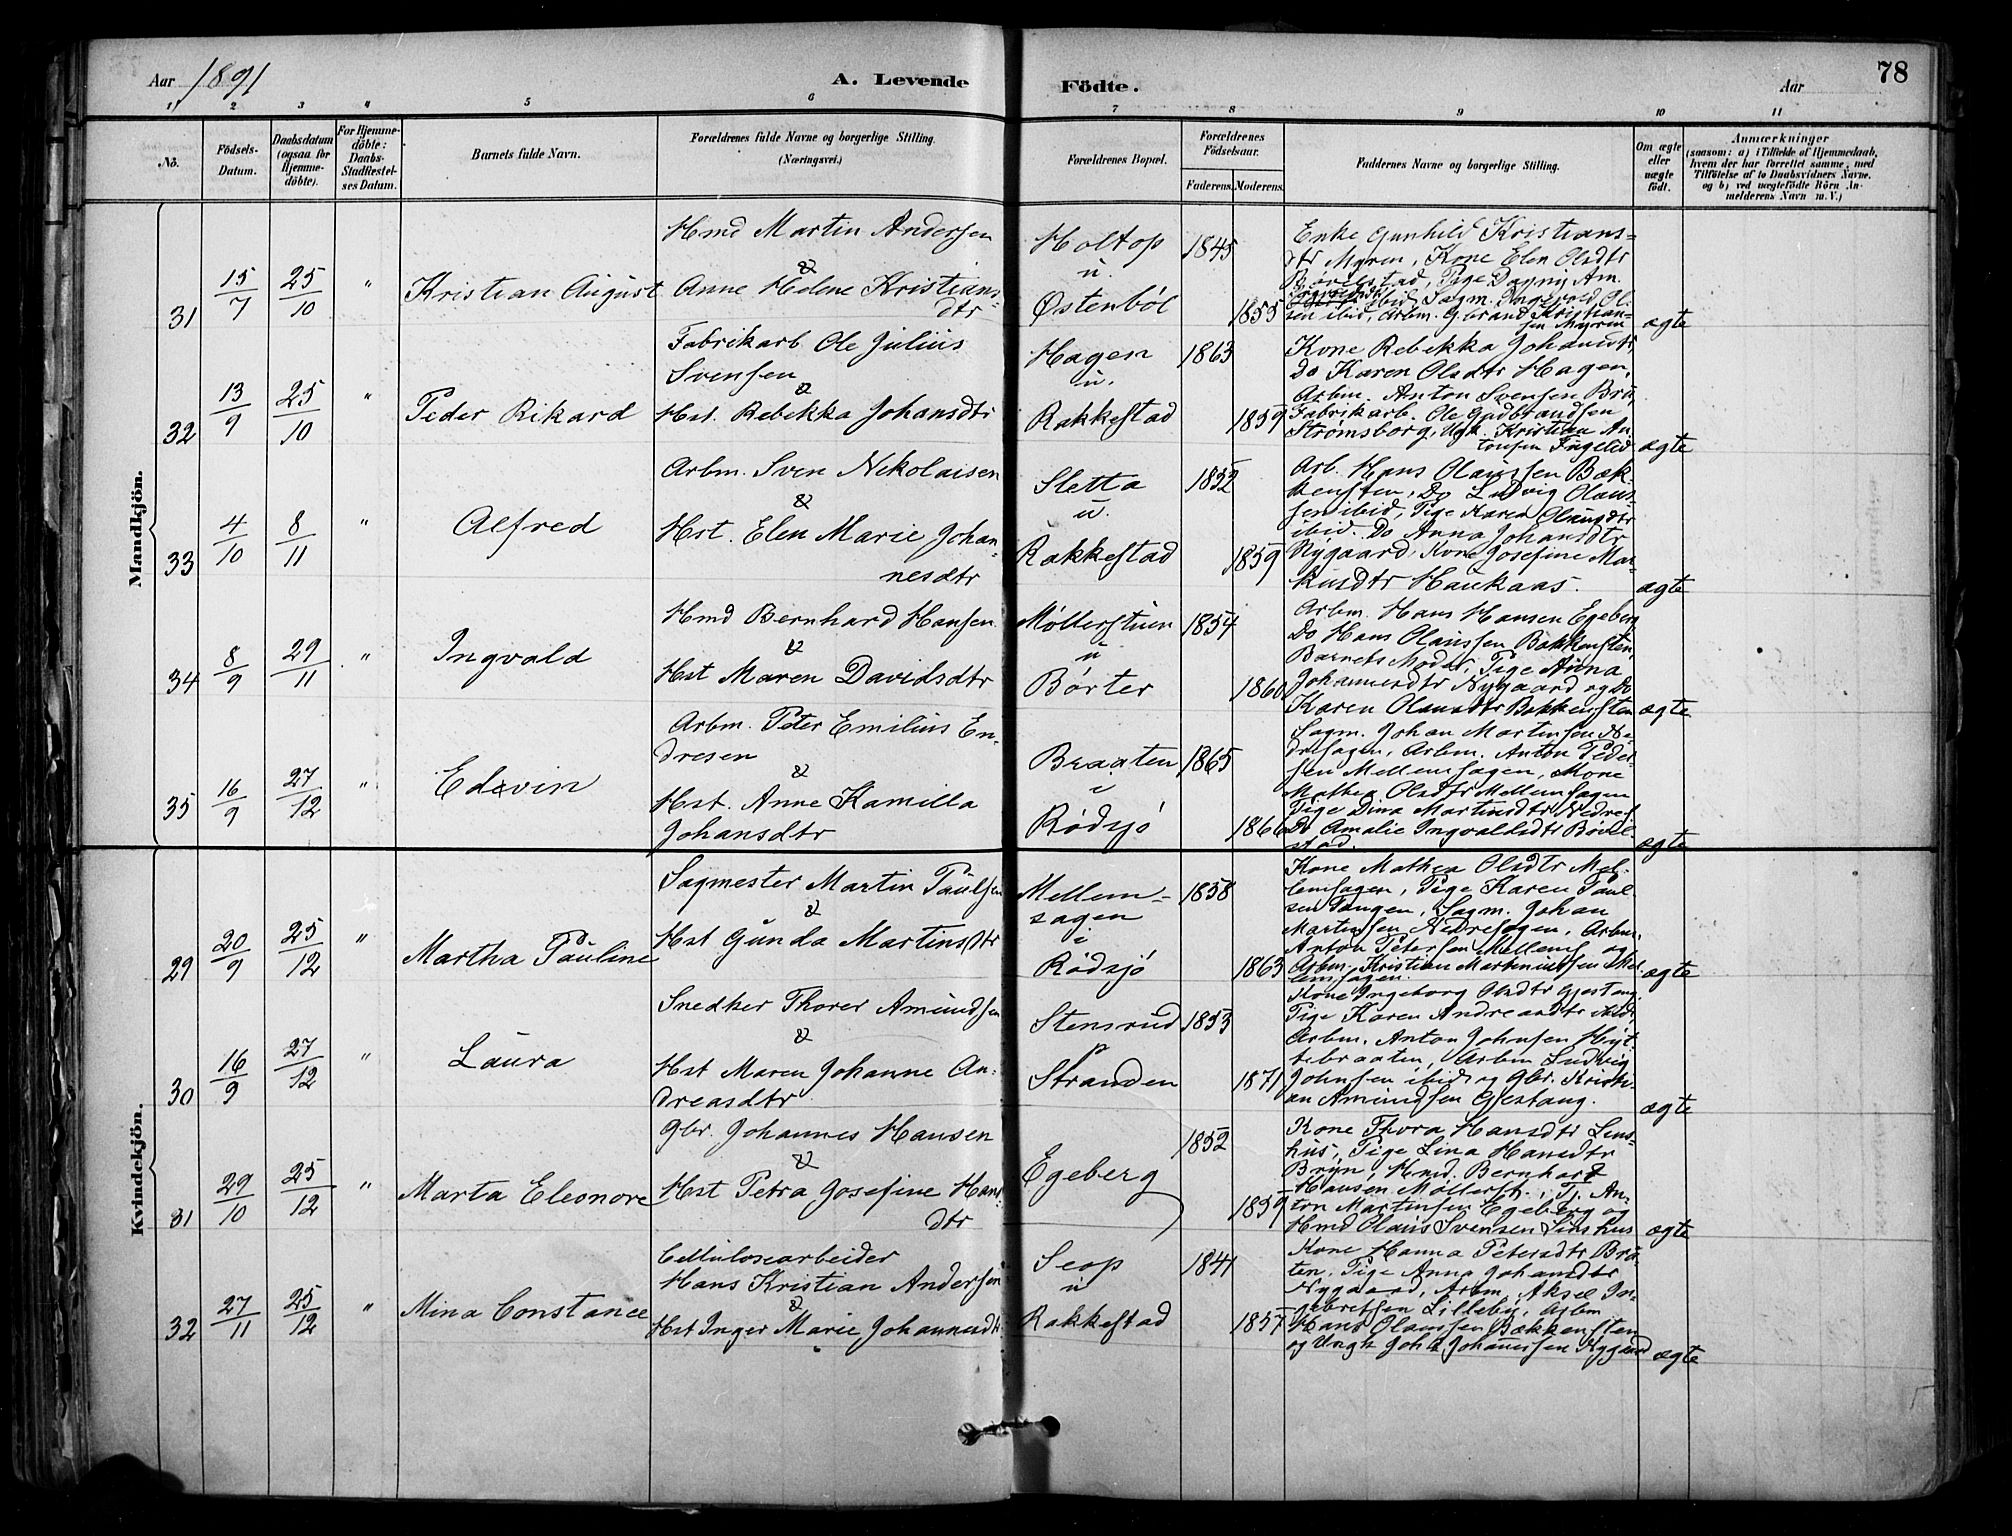 Aar 1891
A. Levende
Födte.
Aar
78
1 2 3 4 5 6 7 8 9 10 11
No.
Födsels-
Datum.
Daabsdatum
(ogsaa for
Hjemme-
döbte).
For Hjemme-
döbte:
Daabs-
Stadfæstel-
ses Datum.
Barnets fulde Navn.
Forældrenes fulde Navne og borgerlige Stilling.
(Næringsvei.)
Forældrenes Bopæl.
Forældrenes
Födselsaar.
Faderens. Moderens.
Faddernes Navne og borgerlige Stilling.
Om ægte
eller
uægte
født.
Anmærkninger
(saasom: a) i Tilfælde af Hjemmedaab,
hvem der har forrettet samme, med
Tilföielse af to Daabsvidners Navne.
og b) ved uægtefödte Börn An-
melderens Navn m. V.)
Mandkjön.
31
15/7
25/10
"
Kristian August
Hmd Martin Andersen
&
Anne Helene Kristians-
dtr
Holtop
u.
Østenböl
1845
1855
Enke Gunhild Kristians-
dtr Myren, Kone Elen Olsdtr
Bövelstad, Pige Dagny Am
ibid, Sagm. Ingvald Ol-
sen ibid, Arbm. G.brand Kristian-
sen Myren
ægte
32
13/9
25/10
"
Peder Rikard
Fabrikarb Ole Julius
Svensen
&
Hst. Rebekka Johansdtr
Hagen
u.
Rakkestad
1863
1859
Kone Rebekka Johansdtr,
Do Karen Olsdtr Hagen,
Arbm. Anton Svensen Brö,
Fabrikarb. Ole Gudbrandsen
Strømsborg, Ugk. Kristian An
tonsen Fingelid
ægte
33
4/10
8/11
"
Alfred
Arbm. Sven Nikolaisen
&
Hst. Elen Marie Johan-
nesdtr
Sletta
u.
Rakkestad
1852
1859
Arb. Hans Olaussen Bæk-
kensten, Do Ludvig Olaus-
sen ibid, Pige Karen Olausdtr
ibid. Do Anna Johansdtr
Nygaard, Kone Josefine Mar-
kusdtr Haukaas.
ægte
34
8/9
29/11
"
Ingvald
Hmd Bernhard Hansen
&
Hst Maren Davidsdtr
Møllerstuen
u
Børter
1854
1860
Arbm. Hans Hansen Egeberg
Do Hans Olaussen Bækkensten,
Barnets Moder, Pige Anna
Johannesdtr Nygaard og Do
Karen Olausdtr Bækkensten
ægte
35
16/9
27/12
"
Edevin
Arbm. Peter Emilius En-
dresen
&
Hst. Anne Kamilla
Johansdtr
Braaten
i
Rödsjö
1865
1866
Sagm. Johan Martinsen Ne-
dresagen, Arbm. Anton Peder-
sen Mellemsagen, Kone
Mathea Olsdtr Mellemsagen
Pige Dina Martinsdtr Nedres
Do Amalie Ingvaldsdtr Bövel
stad.
ægte
Kvindekjön.
29
20/9
25/12
"
Martha Pauline
Sagmester Martin Paulsen
&
Hst Gunda Martinsdtr
Mellem-
sagen
i
Rödsjö
1858
1863
Kone Mathea Olsdtr Mel-
lemsagen, Pige Karen Paul-
sen Tangen, Sagm. Johan
Martinsen Nedresagen, Arbm.
Anton Petersen Mellems og
Arbm. Kristian Martiniussen Mel-
lemsagen.
ægte
30
16/9
27/12
"
Laura
Snedker Thorer Amundsen
&
Hst Maren Johanne An-
dreasdtr
Stensrud
p
Stranden
1853
1871
Kone Ingeborg Olsdtr Gjestang,
Pige Karen Andreasdtr ibid,
Arbm. Anton Johnsen Hyt
tebraaten, Arbm Ludvig
Johnsen ibid og Gbr. Kristi-
an Amundsen Gjestang.
ægte
31
29/10
25/12
"
Marta Eleonore
Gbr. Johannes Hansen
&
Hst Petra Josefine Hans
dtr
Egeberg
1852
1859
Kone Thora Hansdtr Lins-
hus, Pige Lina Hansdtr
Bryn, Hmd. Bernhard
Hansen Møllerst., Tj. An-
ton Martinsen Egeberg og
Hmd Olaus Svensen Linshus
ægte
32
27/11
25/12
"
Mina Constance
Cellulosearbeider
Hans Kristian Andersen
&
Hst Inger Marie Johannesdtr
Seop
u
Rakkestad
1841
1857
Kone Hanna Petersdtr Brö-
ten, Pige Anna Johansdtr
Nygaard, Arbm. Aksel In-
gebretsen Lilleby, Arbm
Hans Olaussen Bækkensten
og Ungk Joh. Johansen Nygaard
ægte